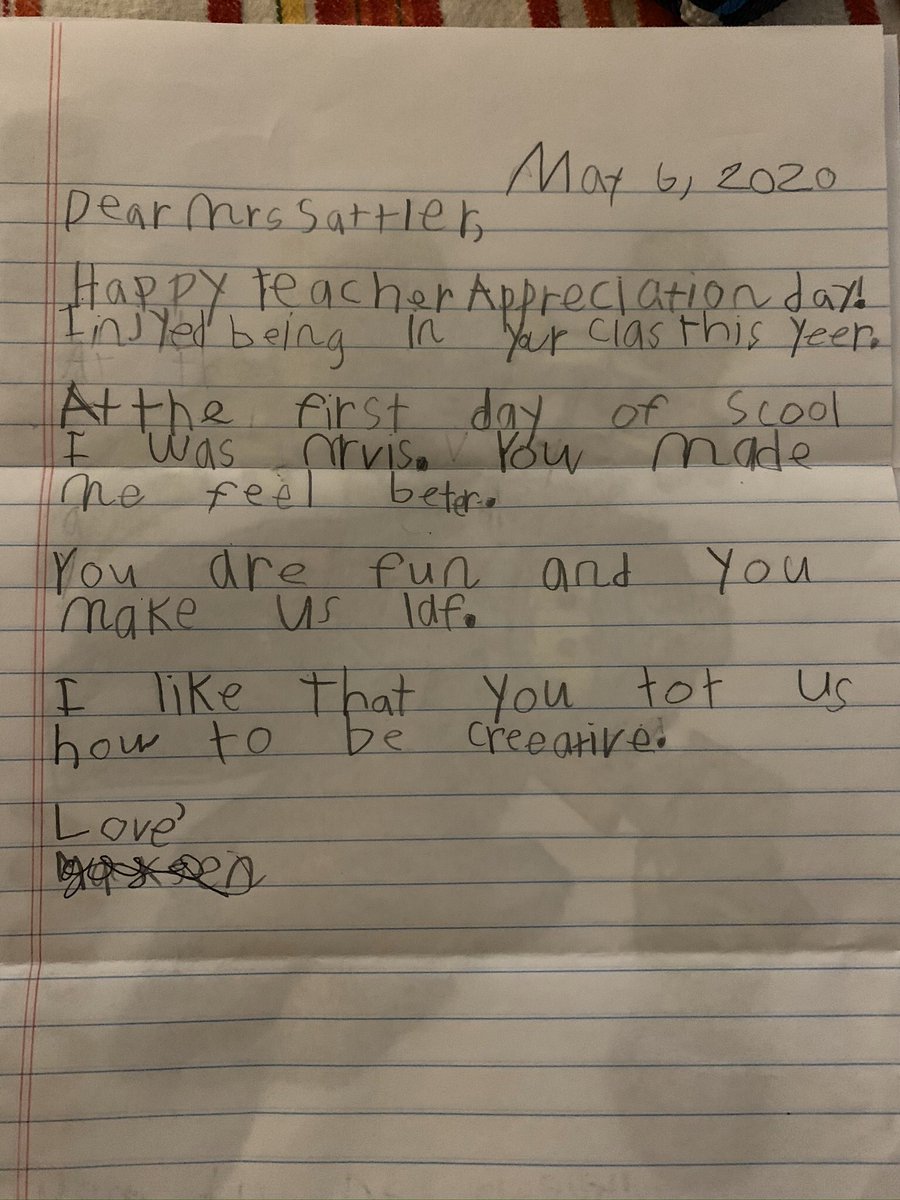 May 6, 2020
Dear Mrs Sattler,
Happy teacher Appreciation day!
I injyed being in your clas this yeer.
At the first day of scool
I was nrvis. You made
me feel beter.
You are fun and you
make us laf.
I like that you tot us
how to be creeative.
Love,